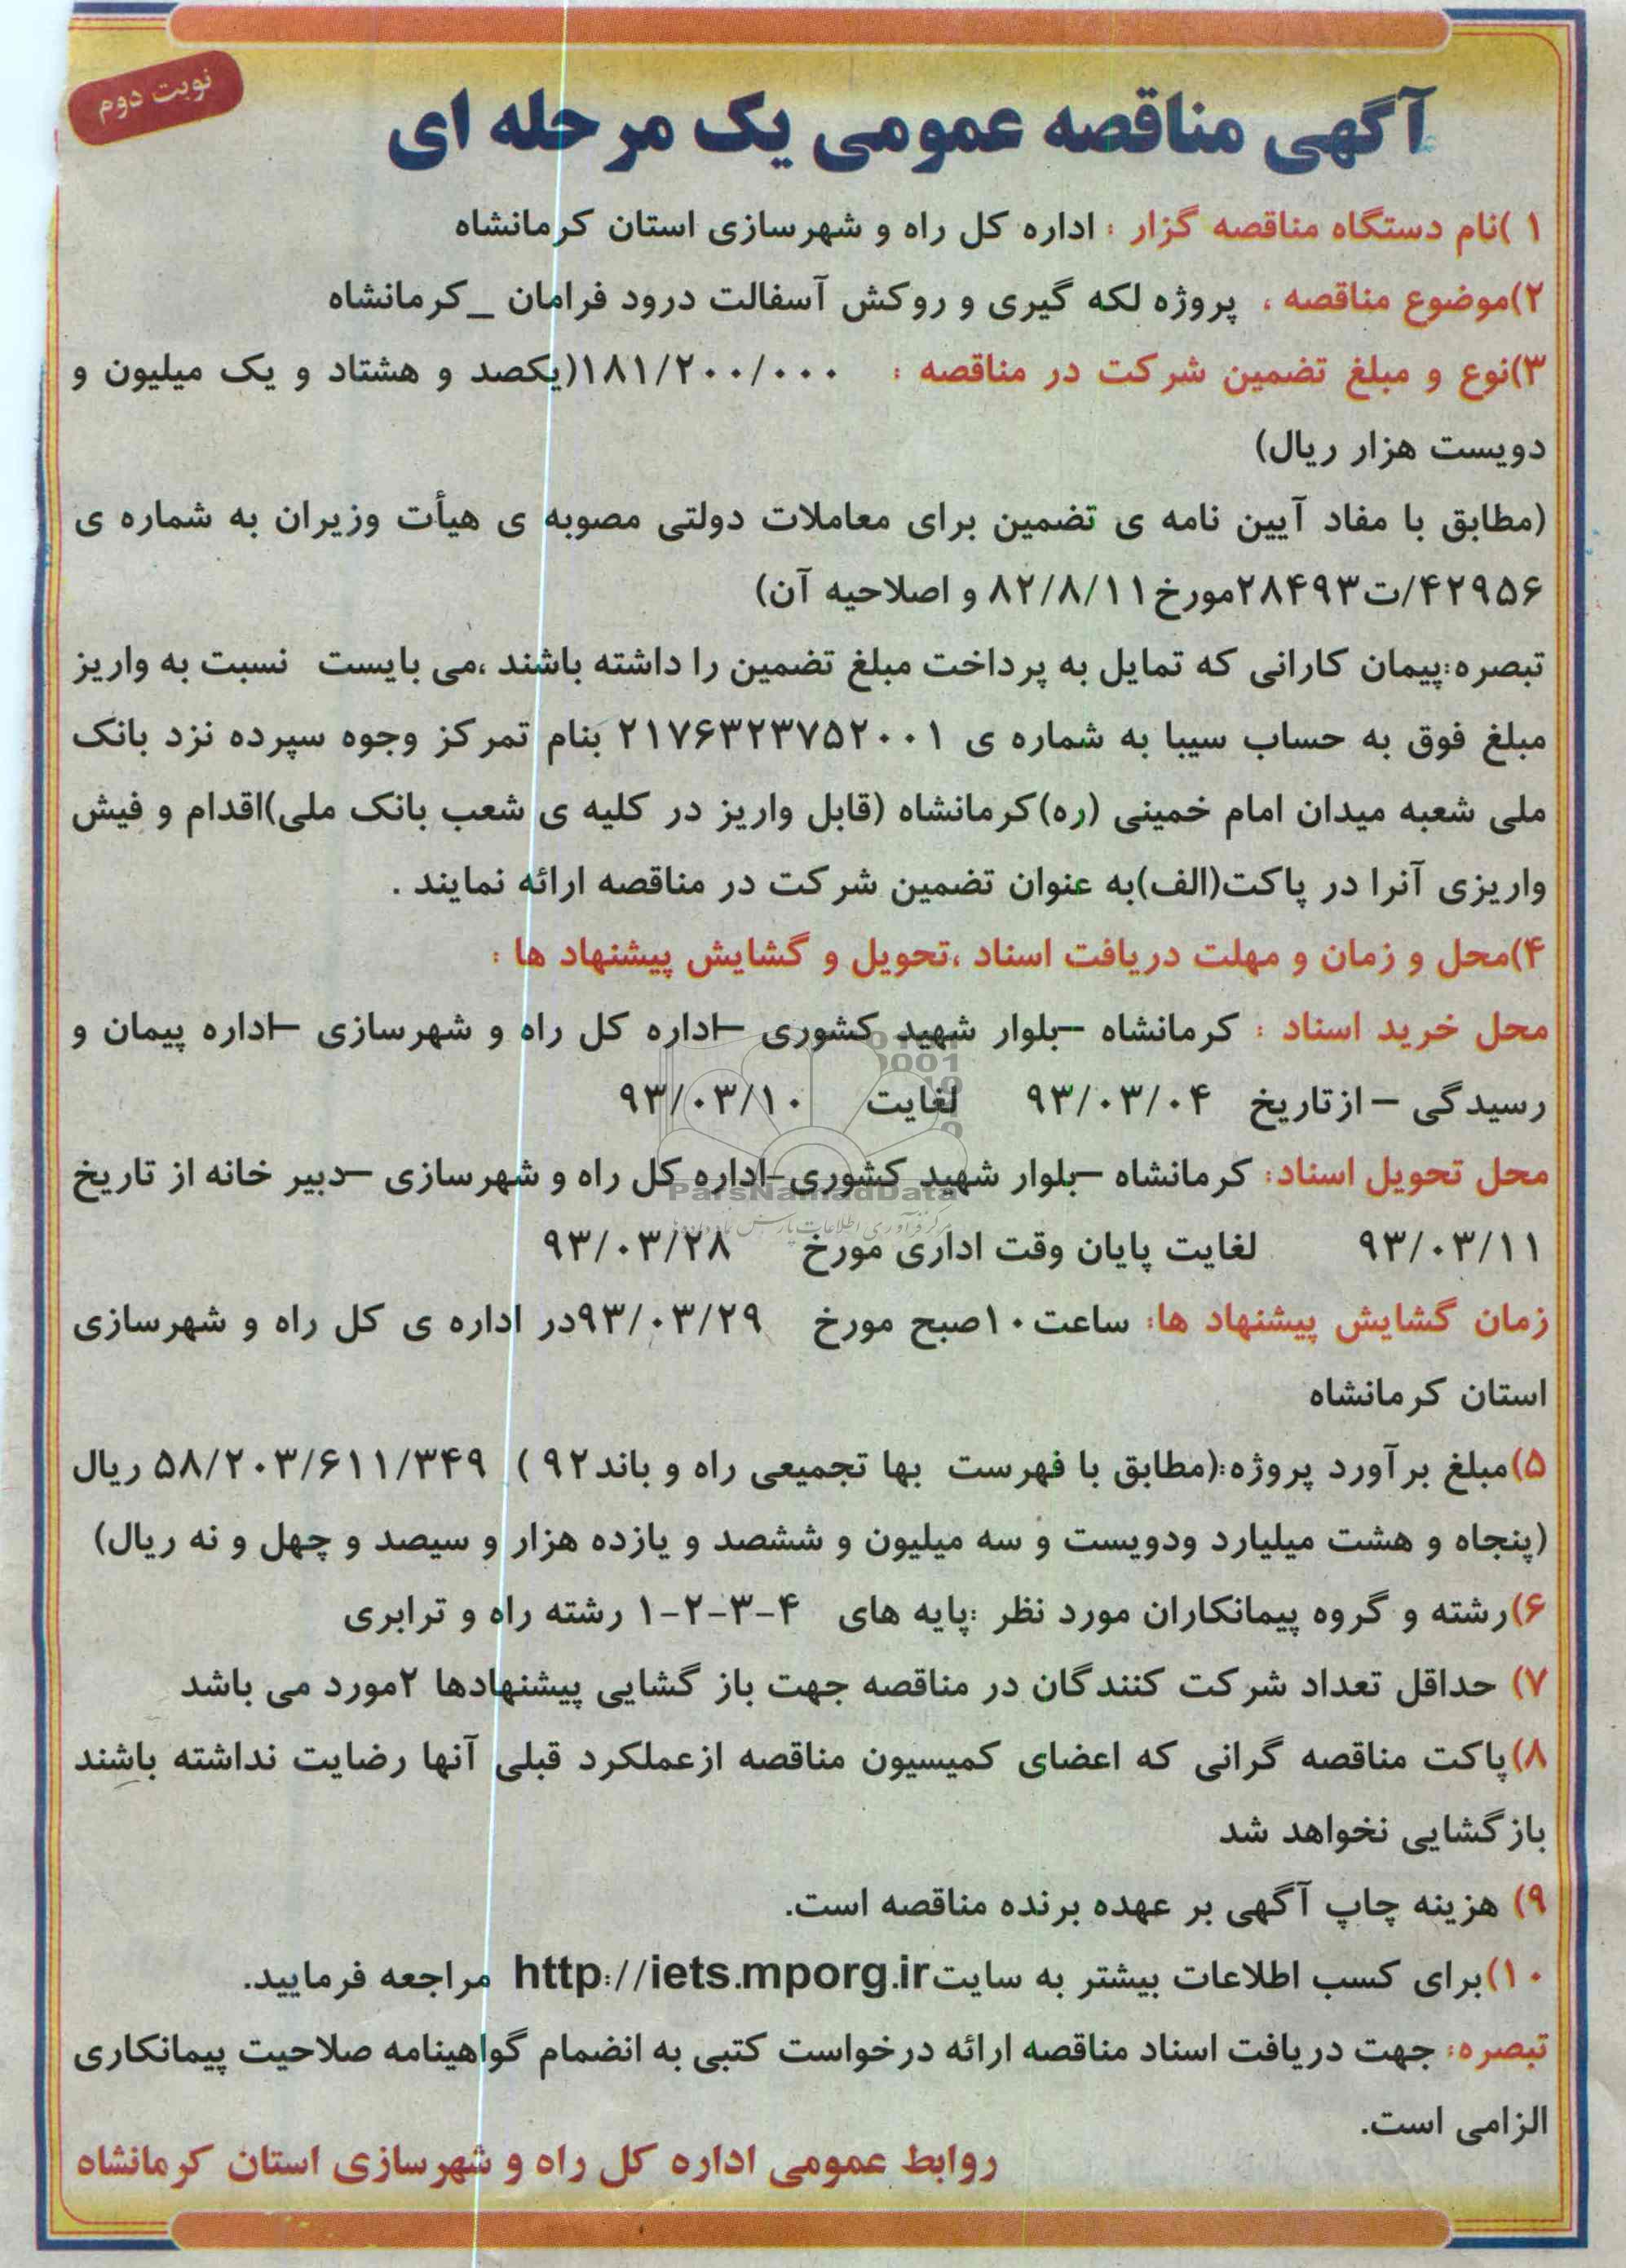 نوبت دوم
آگهی مناقصه عمومی یک مرحله ای
۱ )نام دستگاه مناقصه گزار : اداره کل راه و شهرسازی استان کرمانشاه
۲)موضوع مناقصه ، پروژه لکه گیری و روکش آسفالت درود فرامان _کرمانشاه
۳)نوع و مبلغ تضمین شرکت در مناقصه : ۱۸۱/۲۰۰/۰۰۰(یکصد و هشتاد و یک میلیون و
دویست هزار ریال)
(مطابق با مفاد آیین نامه ی تضمین برای معاملات دولتی مصوبه ی هیأت وزیران به شماره ی
۴۲۹۵۶/ت۲۸۴۹۳مورخ۸۲/۸/۱۱ و اصلاحیه آن)
تبصره:پیمان کارانی که تمایل به پرداخت مبلغ تضمین را داشته باشند ،می بایست نسبت به واریز
مبلغ فوق به حساب سیبا به شماره ی ۲۱۷۶۳۲۳۷۵۲۰۰۱ بنام تمرکز وجوه سپرده نزد بانک
ملی شعبه میدان امام خمینی (ره)کرمانشاه (قابل واریز در کلیه ی شعب بانک ملی)اقدام و فیش
واریزی آنرا در پاکت(الف)به عنوان تضمین شرکت در مناقصه ارائه نمایند .
۴)محل و زمان و مهلت دریافت اسناد ،تحویل و گشایش پیشنهاد ها :
محل خرید اسناد : کرمانشاه –بلوار شهید کشوری –اداره کل راه و شهرسازی –اداره پیمان و
رسیدگی – ازتاریخ ۹۳/۰۳/۰۴ لغایت ۹۳/۰۳/۱۰
محل تحویل اسناد: کرمانشاه –بلوار شهید کشوری-اداره کل راه و شهرسازی –دبیر خانه از تاریخ
۹۳/۰۳/۱۱ لغایت پایان وقت اداری مورخ ۹۳/۰۳/۲۸
زمان گشایش پیشنهاد ها: ساعت۱۰صبح مورخ ۹۳/۰۳/۲۹در اداره ی کل راه و شهرسازی
استان کرمانشاه
۵)مبلغ برآورد پروژه:(مطابق با فهرست بها تجمیعی راه و باند۹۲ ) ۵۸/۲۰۳/۶۱۱/۳۴۹ ریال
(پنجاه و هشت میلیارد ودویست و سه میلیون و ششصد و یازده هزار و سیصد و چهل و نه ریال)
۶)رشته و گروه پیمانکاران مورد نظر :پایه های ۴-۳-۲-۱ رشته راه و ترابری
۷) حداقل تعداد شرکت کنندگان در مناقصه جهت باز گشایی پیشنهادها ۲مورد می باشد
۸)پاکت مناقصه گرانی که اعضای کمیسیون مناقصه ازعملکرد قبلی آنها رضایت نداشته باشند
بازگشایی نخواهد شد
۹) هزینه چاپ آگهی بر عهده برنده مناقصه است.
۱۰)برای کسب اطلاعات بیشتر به سایتhttp://iets.mporg.ir مراجعه فرمایید.
تبصره: جهت دریافت اسناد مناقصه ارائه درخواست کتبی به انضمام گواهینامه صلاحیت پیمانکاری
الزامی است.
روابط عمومی اداره کل راه و شهرسازی استان کرمانشاه
ParsNamadData